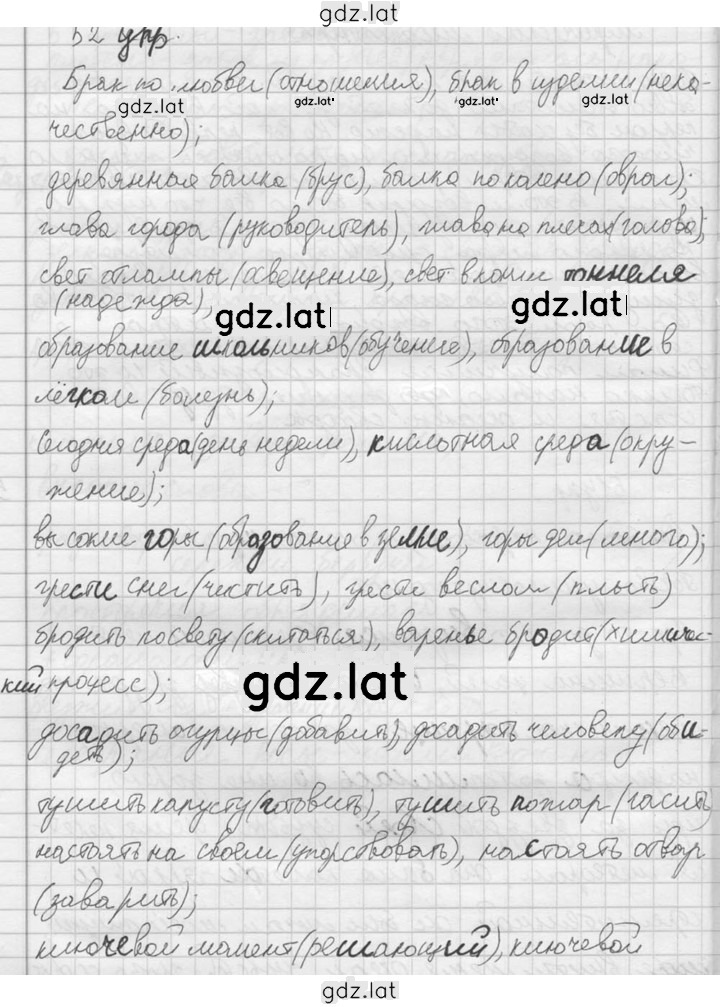 gdz.lat
52 упр.
Брак по любви (отношения), брак в изделии (нека-
gdz.lat gdz.lat gdz.lat gdz.lat
чественно);
деревянная балка (брус), балка по колено (овраг);
глава города (руководитель), глава на плечах (голова);
свет от лампы (освещение), свет в конце тоннеля
(надежда),
gdz.lat gdz.lat
образование школьников (обучение), образование в
лёгком (болезнь);
Сегодня среда (день недели), кислотная среда (окру-
жение);
высокие горы (образование в земле), горы дел (много);
грести снег (чистить), грести веслом (плыть)
бродить по свету (скитаться), варенье бродит (химичес-
кий процесс);
gdz.lat
досадить огурцы (добавить), досадить человеку (оби-
деть);
тушить капусту (готовить), тушить пожар (гасить)
настоять на своём (упорствовать), настоять отвар
(заварить);
ключевой момент (решающий), ключевой
gdz.lat